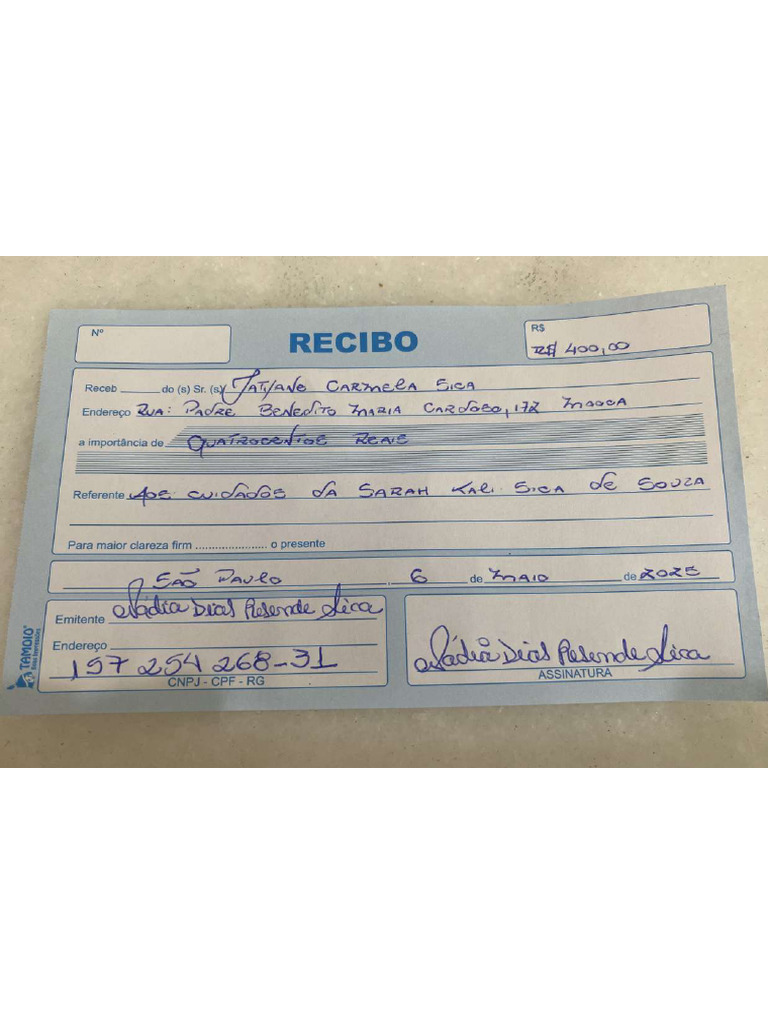 Nº
RECIBO
R$
R$ 400,00
Receb ____ do (s) Sr. (s) Tatiano Carmela Sica
Endereço Rua: Padre Benedito Maria Cardoso, 172 Mooca
a importância de Quatrocentos Reais
Referente Aos cuidados da Sarah Kali Sica de Souza
Para maior clareza firm ...................... o presente
São Paulo, 6 de Maio de 2025
Emitente Nádia Dias Resende Sica
Endereço
157 254 268-31
CNPJ - CPF - RG
Nádia Dias Resende Sica
ASSINATURA
TAMOIO